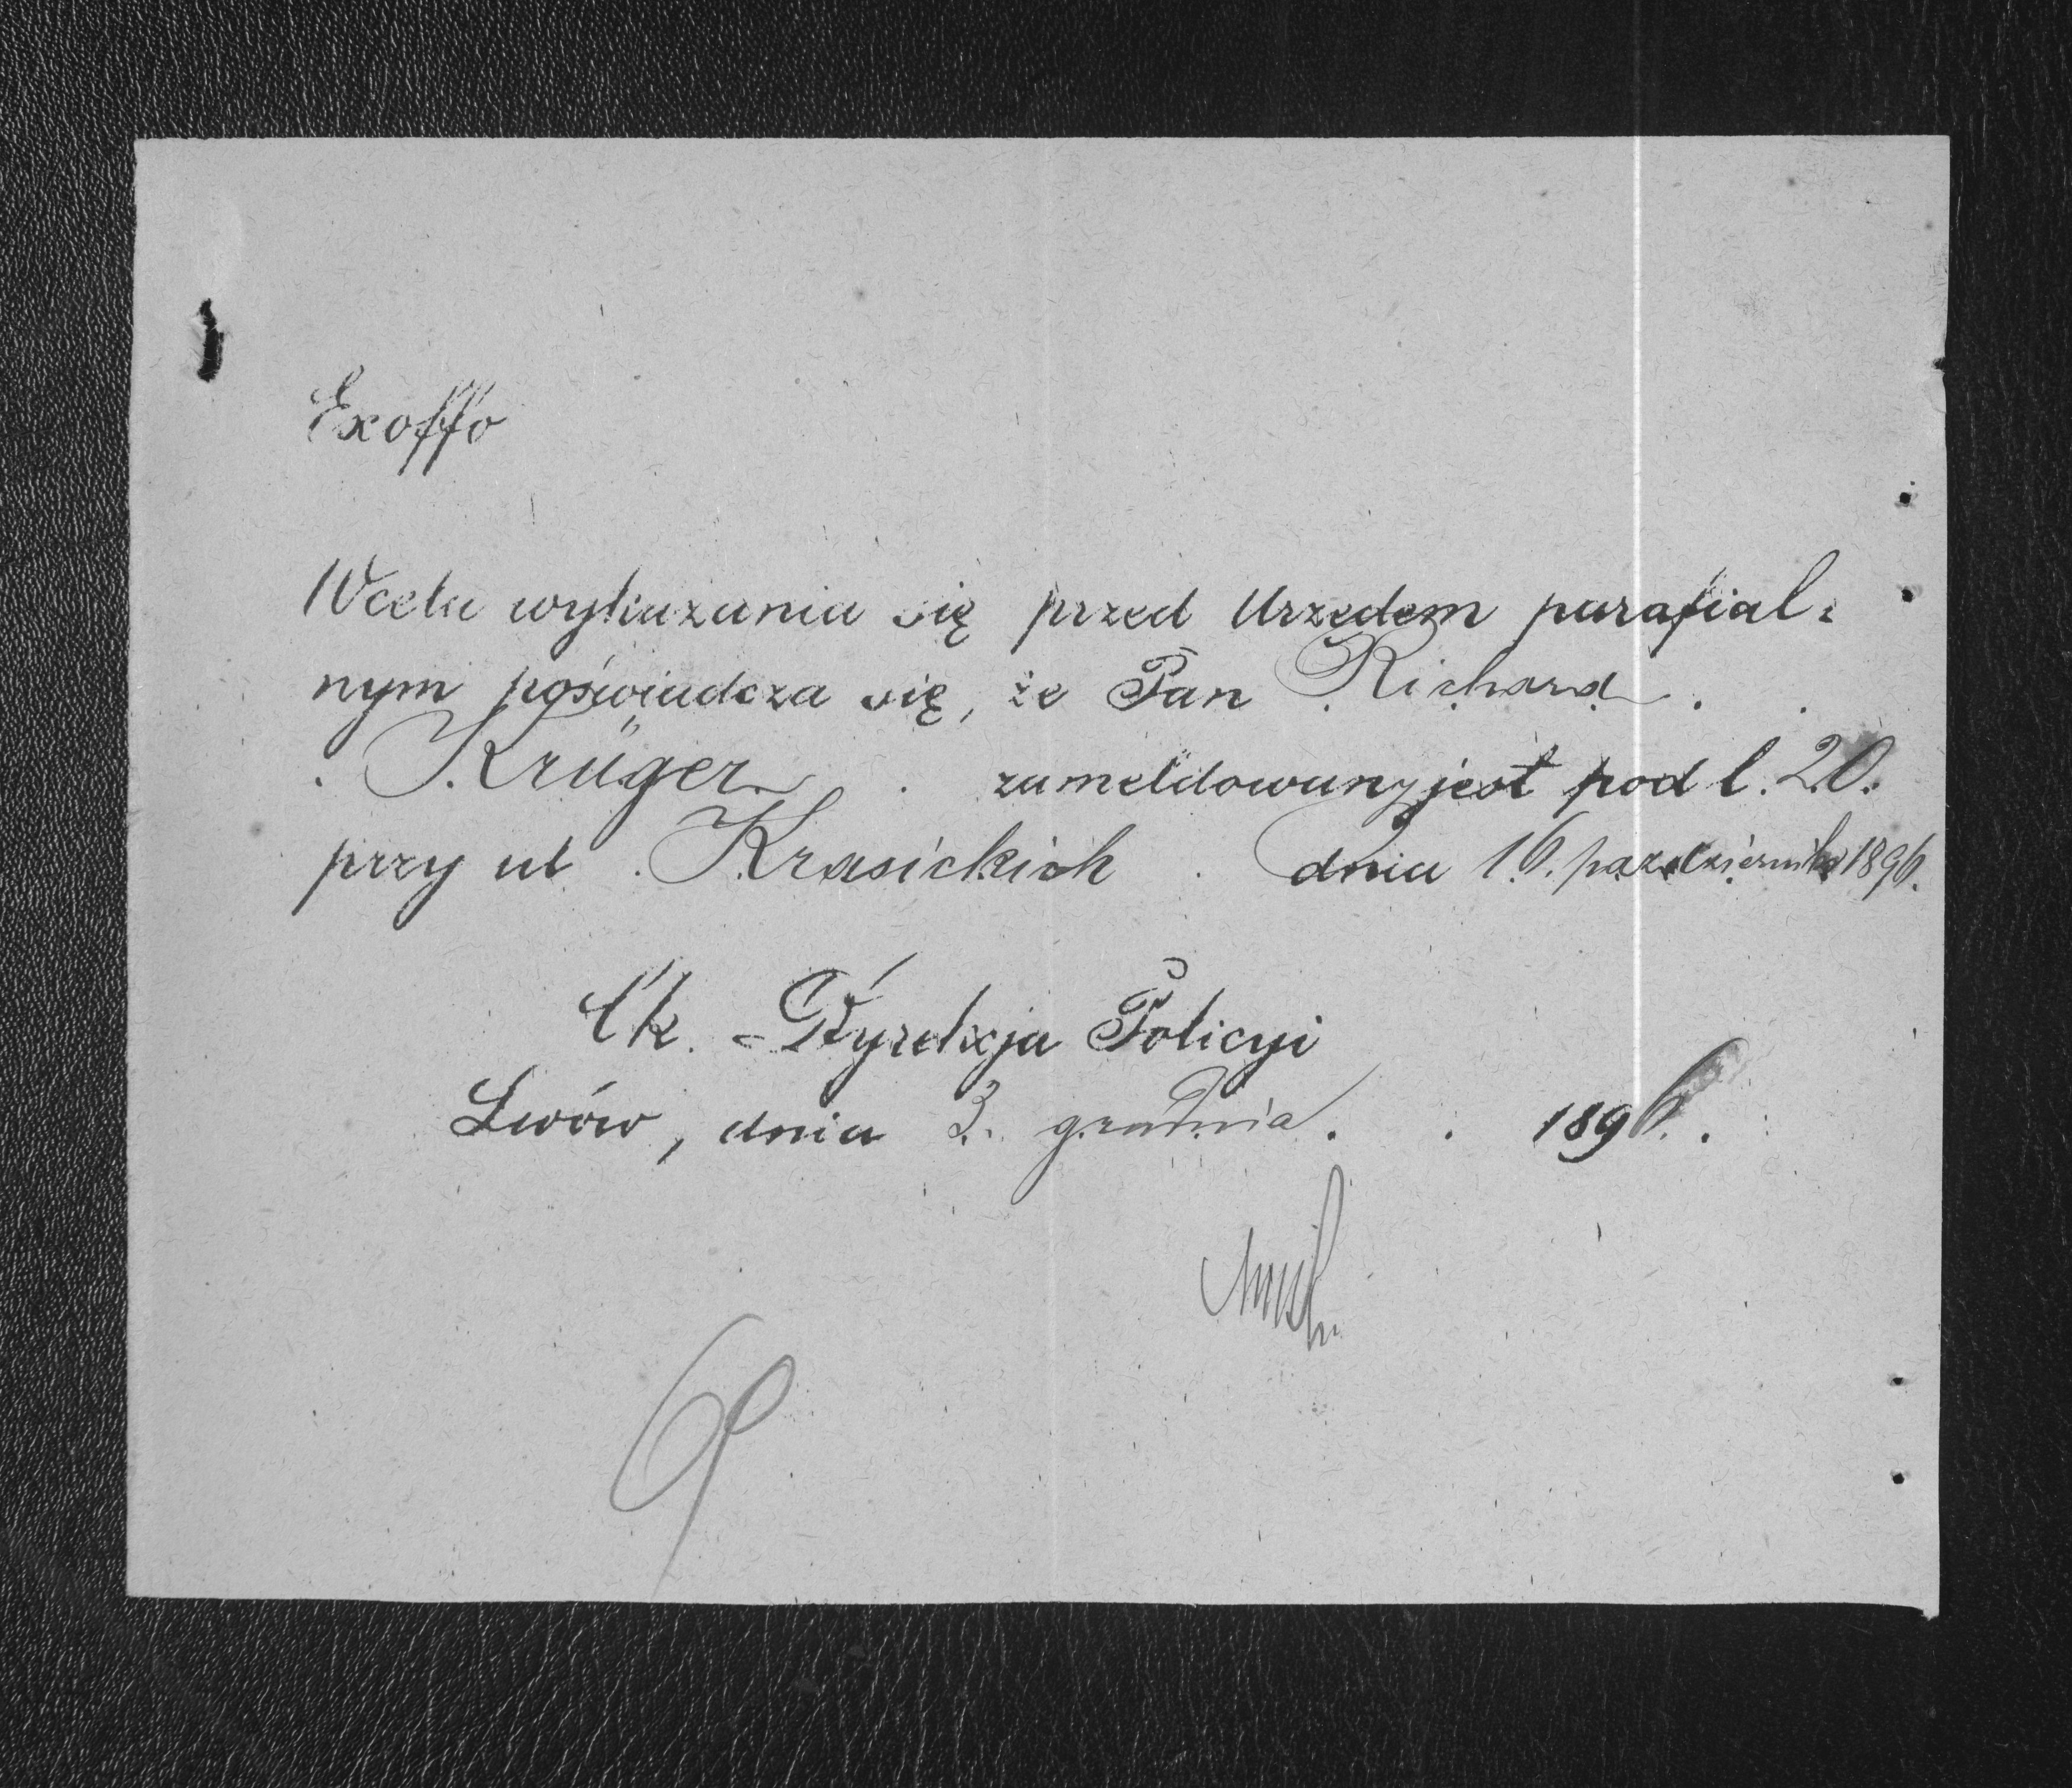 Exoffo
W celu wykazania się przed Urzędem parafial=
nym poświadcza się, że Pan Richard
Krüger zameldowany jest pod l. 20.
przy ul Krasickich dnia 16. października 1896.
Ck. Dyrekcja Policyi
Lwów, dnia 3. grudnia 1896.